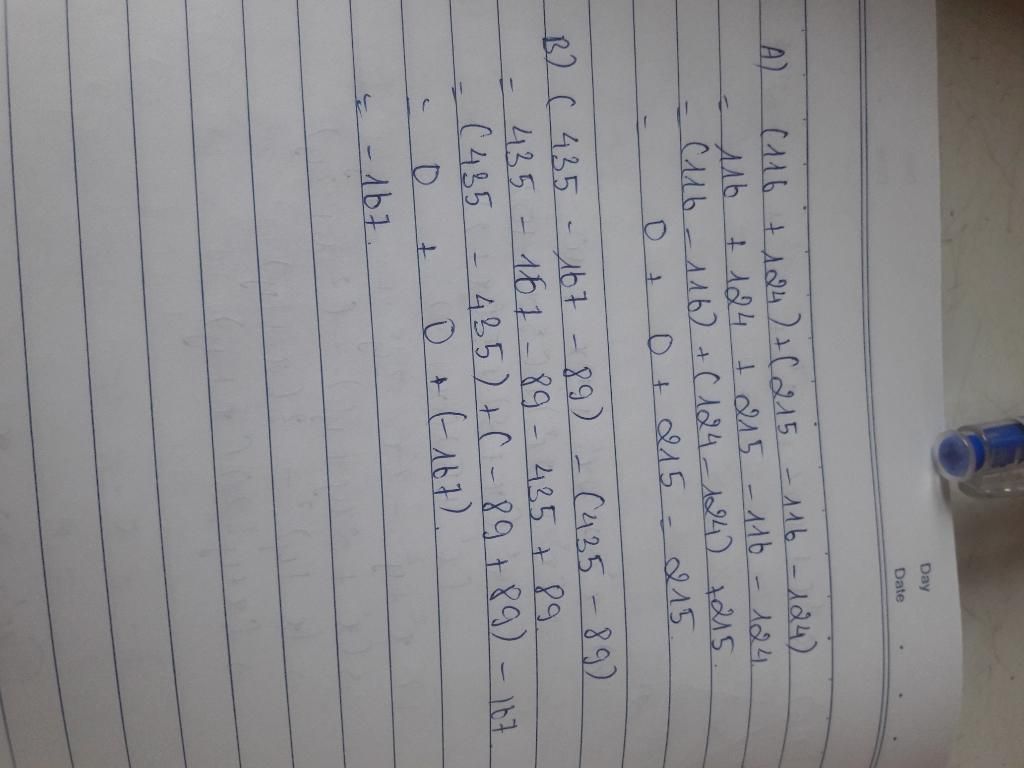 Day
Date
A) (116 + 124) + (215 - 116 - 124)
= 116 + 124 + 215 - 116 - 124
= (116 - 116) + (124 - 124) + 215.
= 0 + 0 + 215 = 215.
B) (435 - 167 - 89) - (435 - 89)
= 435 - 167 - 89 - 435 + 89.
= (435 - 435) + (- 89 + 89) - 167
= 0 + 0 + (-167).
= - 167.